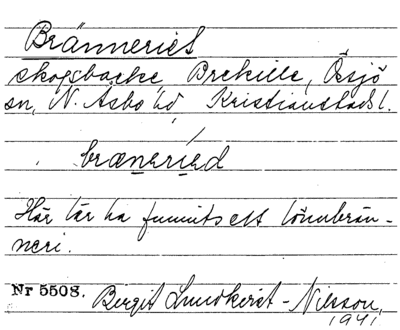 Bränneriet
skogsbacke, Brekille, Össjö
sn, N. Åsbo hd, Kristianstads l.
bræneried
Här lär ha funnits ett lönnbrän-
neri.
Nr 5508. Birgit Lundkvist-Nilsson,
1941.